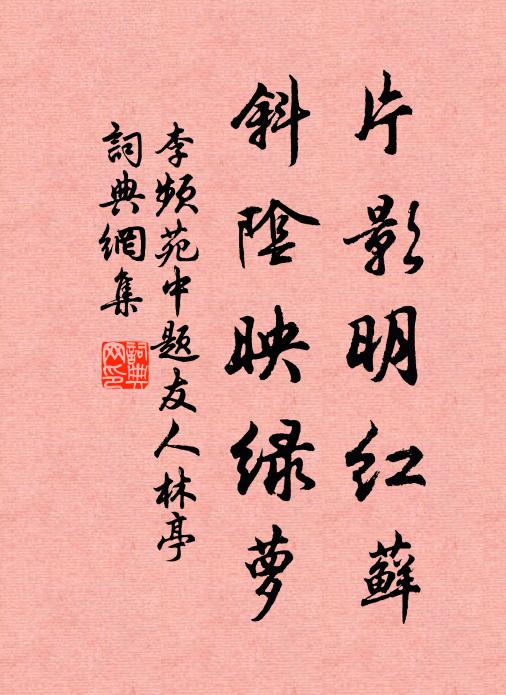 片影明红蘚
斜陰映緑萝
李频苑中题友人林亭
詞典網集
詞典网印